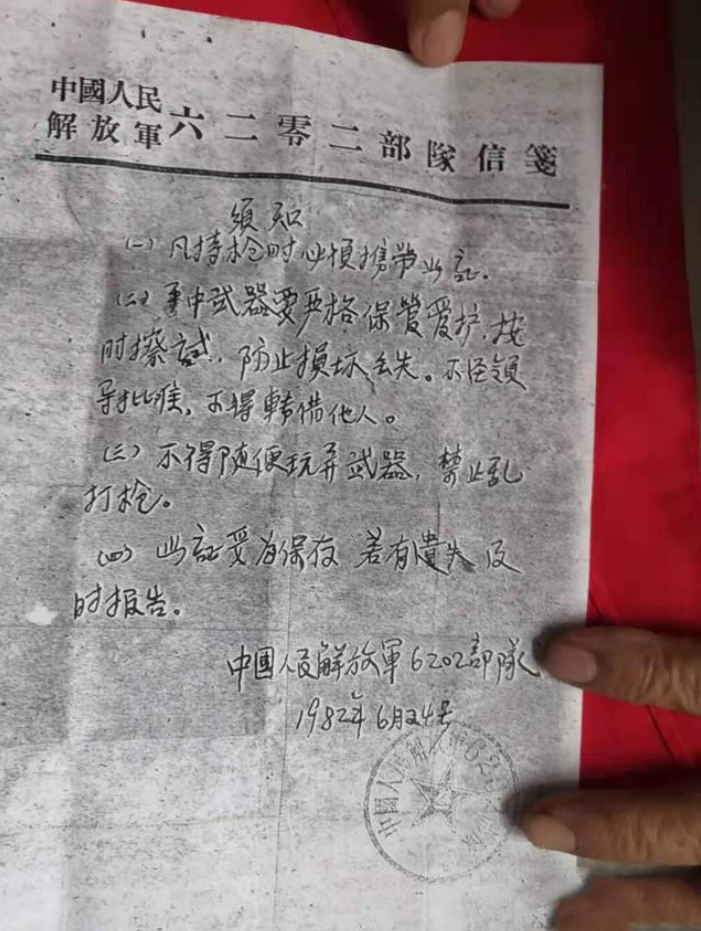 中國人民
解放軍六二零二部隊信箋
須知
(一) 凡持枪时必須携带此証。
(二) 手中武器要严格保管爱护，按
时擦拭，防止损坏丢失。不经领
导批准，不得轉借他人。
(三) 不得随便玩弄武器，禁止乱
打枪。
(四) 此証妥为保存 若有遺失 及
时报告。
中國人民解放軍6202部隊
1982年6月24号
中國人民解放軍62